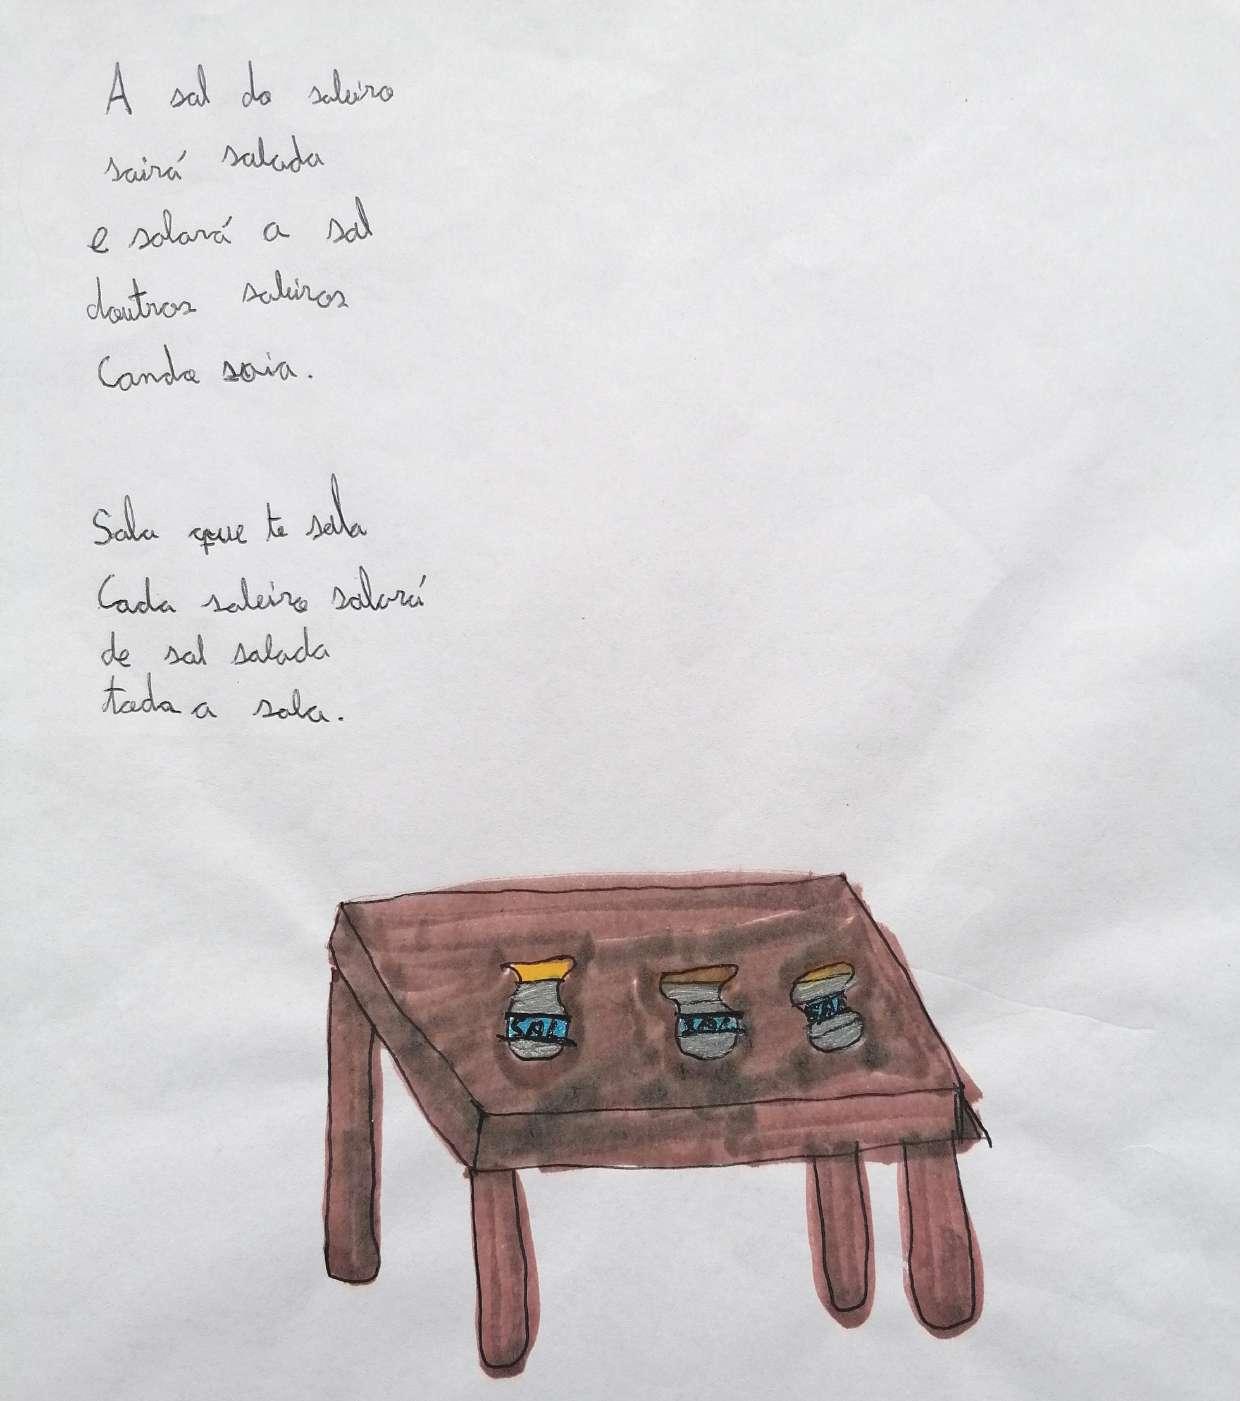 A sal do saleiro
sairá salada
e salará a sal
doutros saleiros
Cando saia.
Sala que te sala
Cada saleiro salará
de sal salada
toda a sala.
SAL SAL SAL